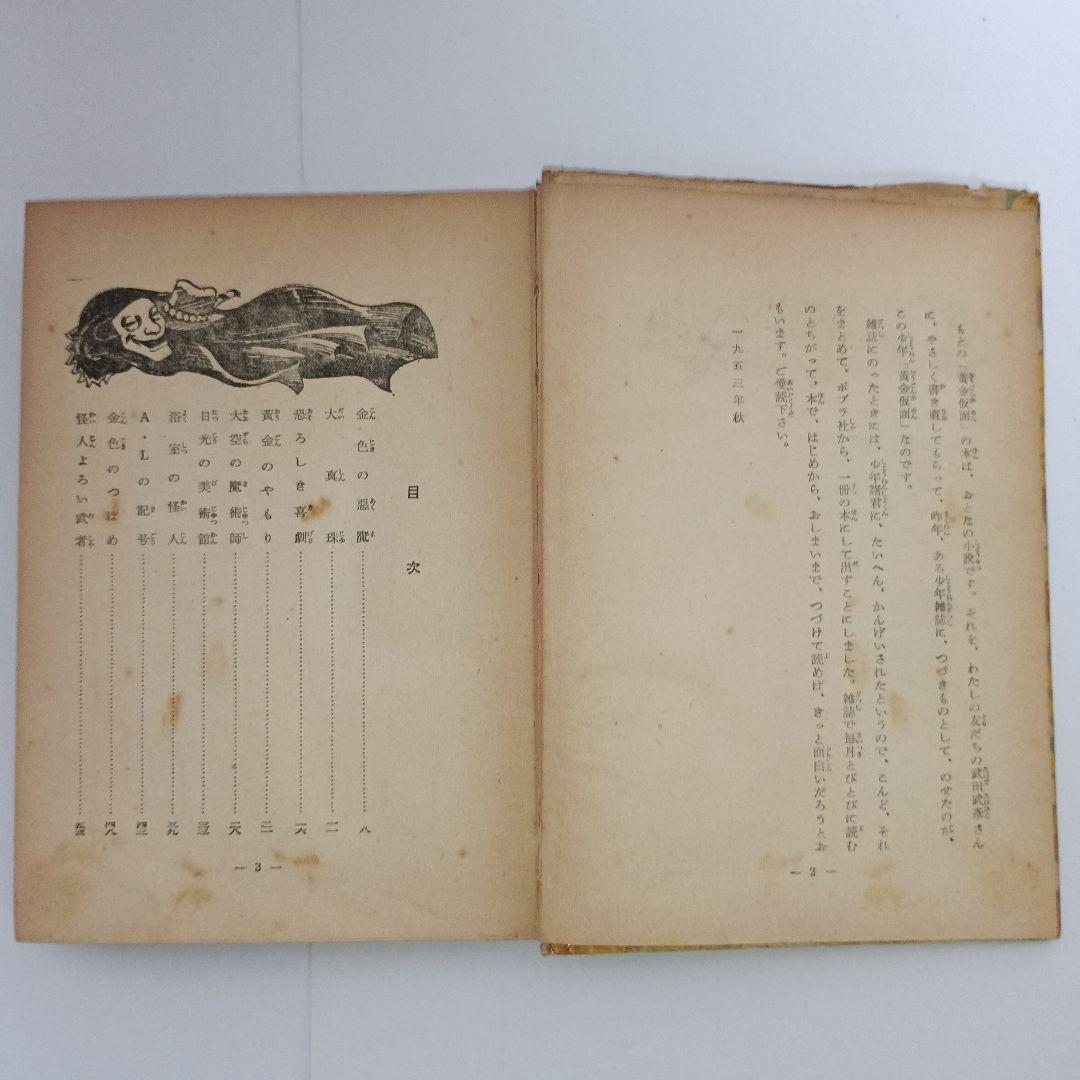 もとの「黄金仮面」の本は、おとなの小説です。それを、わたしの友だちの武田武彦さん
に、やさしく書き直してもらって、昨年、ある少年雑誌に、つづきものとして、のせたのが、
この少年「黄金仮面」なのです。
雑誌にのったときには、少年諸君に、たいへん、かんげいされたというので、こんど、それ
をまとめて、ポプラ社から、一冊の本にして出すことにしました。雑誌で毎月とびとびに読む
のとちがって、本で、はじめから、おしまいまで、つづけて読めば、きっと面白いだろうとお
もいます。ご愛読下さい。
一九五三年秋
― 2 ―
目次
金色の悪魔……八
大真珠……一一
恐ろしき喜劇……一六
黄金のやもり……二一
大空の魔術師……二六
日光の美術館……三三
浴室の怪人……三九
A・Lの記号……四三
金色のつばめ……四八
怪人よろい武者
― 3 ―